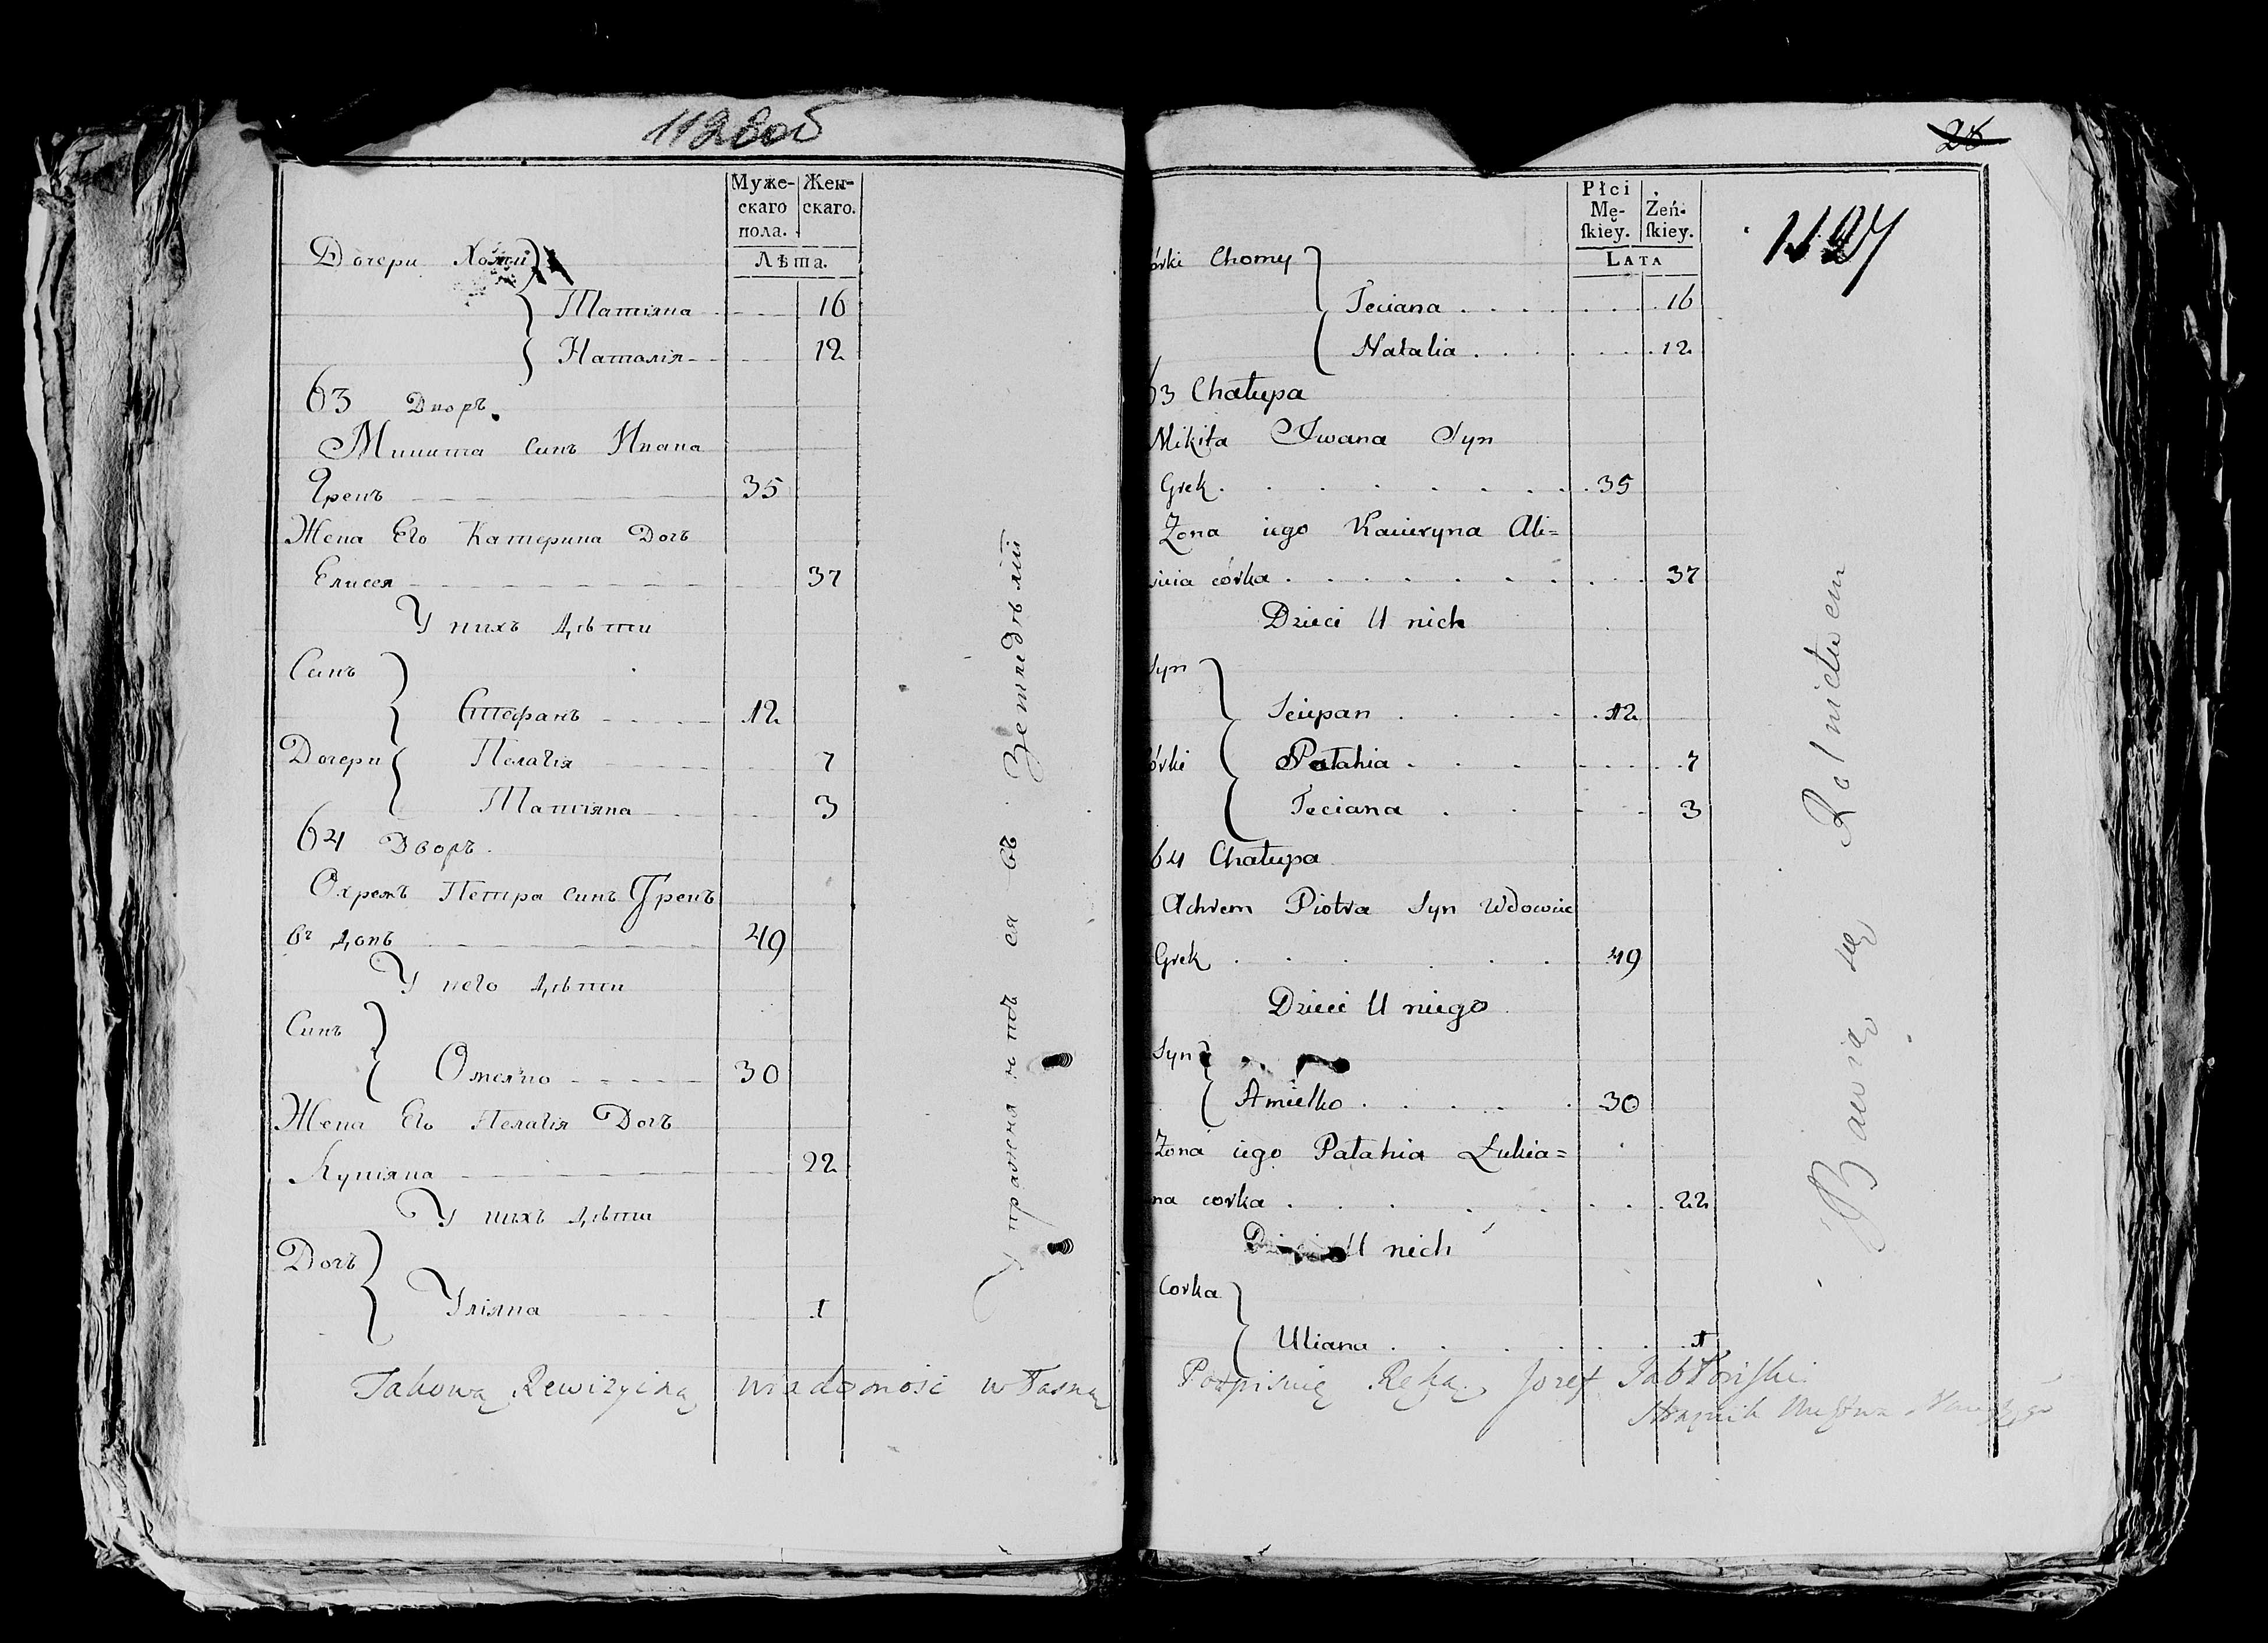 Муже-
скаго
пола.
Жен-
скаго.
Лѣта.
Дочери Хомы
Татіяна 16
Наталія 12
63 Дворъ
Микита синъ Ивана
Грекъ 35
Жена Его Катерина Дочъ
Елисея 37
У нихъ Дѣти
Синъ
Стефанъ 12
Дочери Пелагія 7
Татіяна 3
64 Дворъ
Охремъ Петра синъ Грекъ
49
У него Дѣти
Синъ
Омелко 30
Жена Его Пелагія Дочъ
Лукіяна 22
У нихъ Дѣти
Дочъ
Уліяна 1
Упражняютъ ся въ Земледѣліи
Takową Rewizyiną wiadomość własną
1127
Płci
Mę-
ſkiey.
Żeń-
ſkiey.
LATA
órki Chomy
Teciana 16
Natalia 12
63 Chałupa
Mikita Jwana Syn
Grek 35
Zona iego Kacieryna Ali=
sieia córka 37
Dzieci U nich
Syn
Sciepan 12
órki Pałahia 7
Teciana 3
64 Chałupa
Achrem Piotra Syn Wdowiec
Grek 49
Dzieci U niego
Syn
Amielko 30
Zona iego Pałahia Łukia=
na corka 22
Dzieci U nich
Corka
Uliana 1
Bawią się Rolnictwem
Podpisuię Ręką Jozef Jabłoński